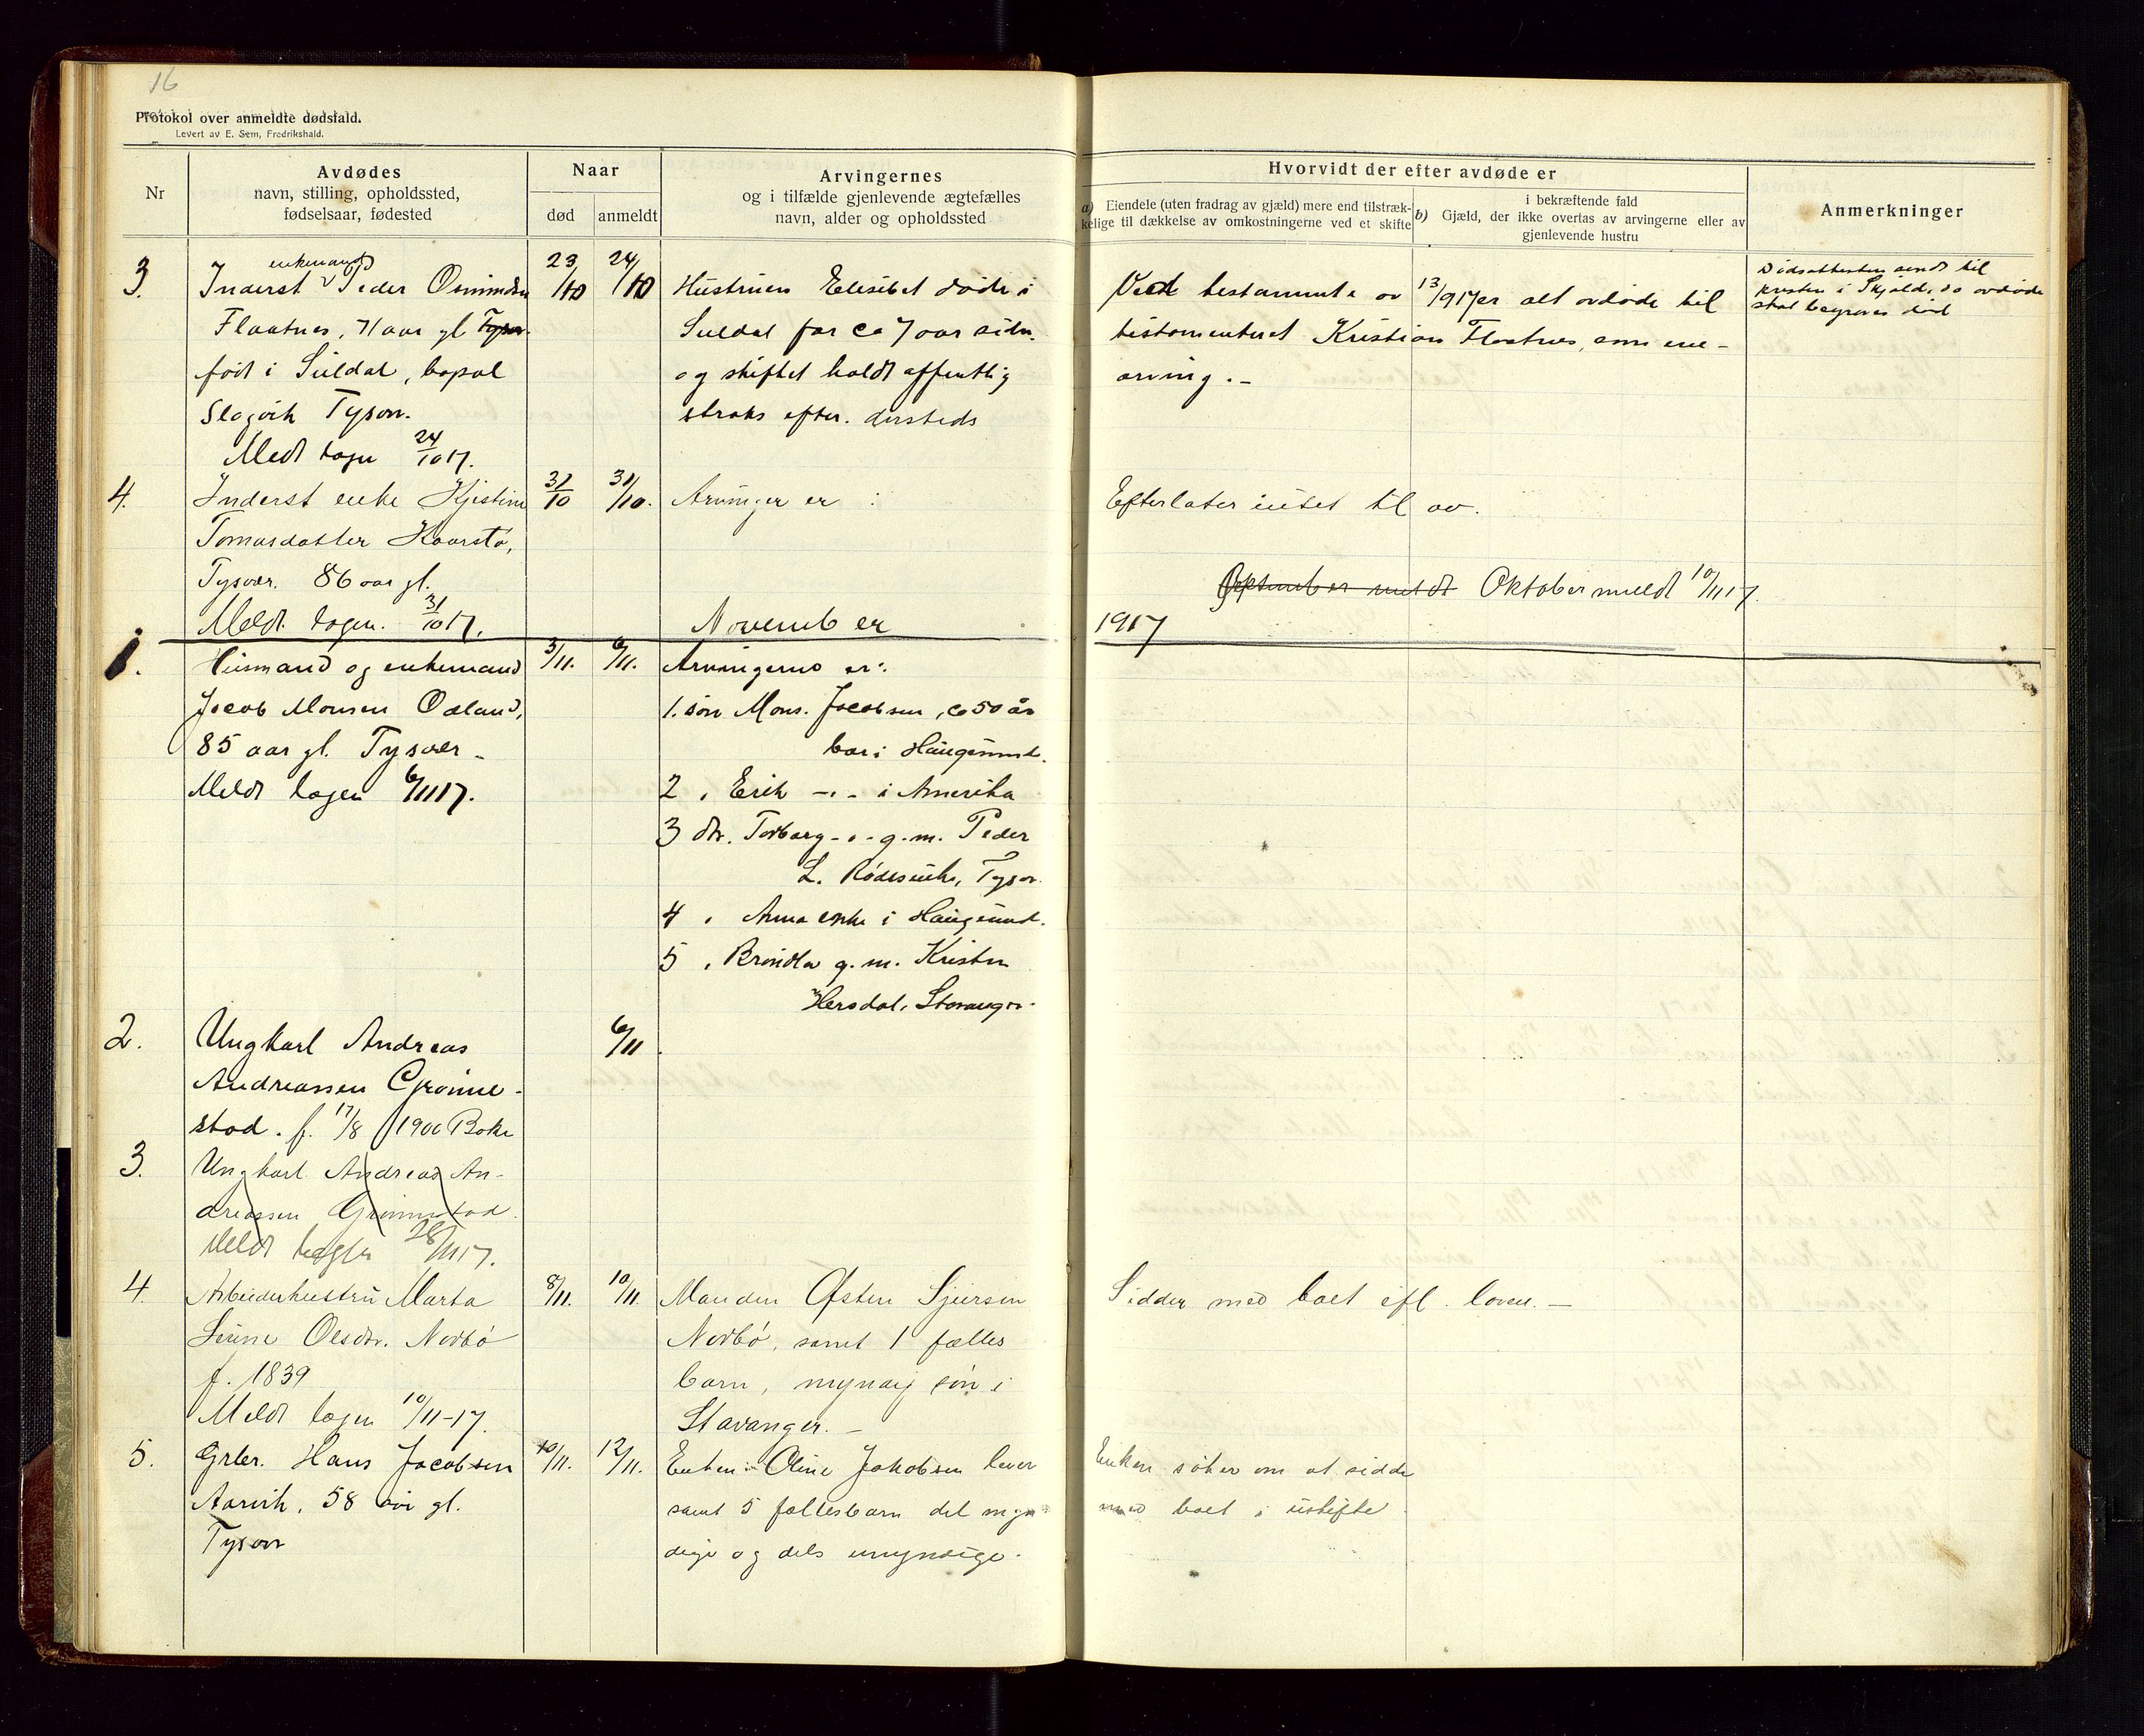 16
Protokol over anmeldte dødsfald.
Levert av E. Sem, Fredrikshald.
Nr
Avdødes
navn, stilling, opholdssted,
fødselsaar, fødested
Naar
død
anmeldt
Arvingernes
og i tilfælde gjenlevende ægtefælles
navn, alder og opholdssted
Hvorvidt der efter avdøde er
a) Eiendele (uten fradrag av gjæld) mere end tilstræk-
kelige til dækkelse av omkostningerne ved et skifte
i bekræftende fald
b) Gjæld, der ikke overtas av arvingerne eller av
gjenlevende hustru
Anmerkninger
3.
enkemand
Inderst Peder Osmundsen
Flaatnes, 71 aar gl Tysvær
født i Suldal, bopæl
Slogvik Tysvær.
Meldt logen 24/10 17.
23/10
24/10
Hustruen Elisabet døde i
Suldal for ca 7 aar siden
og skiftet holdt offentlig
straks efter. dersteds
Ved testamente av 13/9 17 er alt avdøde til
testamenteret Kristian Flaatnes, som ene-
arving. -
Dødsattesten sendt til
presten i Skjold, da avdøde
skal begraves der
4.
Inderst enke Kjistine
Tomasdatter Haarstø,
Tysvær. 86 aar gl.
Meldt logen. 31/10 17.
31/10
31/10.
Arvinger er :
Efterlater intet til arv.
September meldt Oktober meldt 10/11 17.
November
1917
1.
Husmand og enkemand
Jacob Monsen Odland,
85 aar gl. Tysvær -
Meldt logen 6/11 17.
3/11.
6/11.
Arvingerne er:
1. søn Mons. Jacobsen, ca 50 år
bor i Haugesund.
2 " Erik -"- i Amerika
3 dtr. Torborg -"- g.m. Peder
L. Tysvær.
4 " Anna enke i Haugesund.
5 " g.m. Kristen
Hersdal, Stavanger.
2.
Ungkarl Andreas
Andreassen Grønne-
stad. f. 17/8 1900 Bokn
6/11
3.
Ungkarl Andreas An-
dreassen Grønnestad.
Meldt logen 28/11 17.
4.
Arbeiderhustru Marta
Serine Olsdtr. Nordbø
f. 1839
Meldt logen 10/11-17.
8/11.
10/11.
Manden Østen Sjursen
Nordbø, samt 1 fælles
barn, myndig søn i
Stavanger. -
Sidder med boet efl. loven. -
5.
Grbr. Hans Jacobsen
Aarvik, 58 aar gl.
Tysvær
10/11.
12/11.
Enken: Oline Jakobsen lever
samt 5 fællesbarn del myn-
dige og dels umyndige.
Enken søker om at sidde
med boet i uskifte